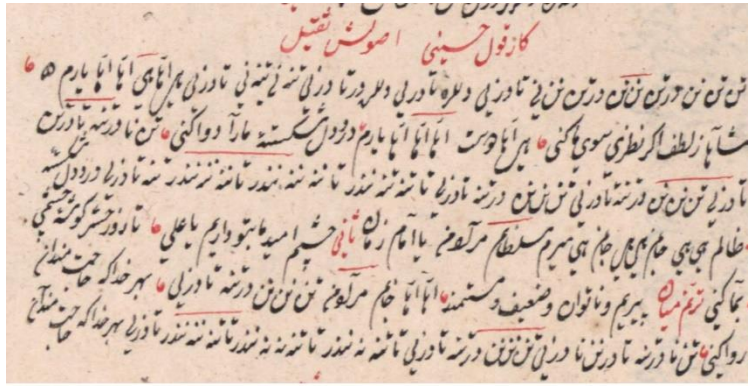 کار قول حسینی اصولش ثقیل
تن تن تن درتن تن تن درتن تن نی تادرنی دلله تادرنی دللن درتادرنی تنه نی تنه نی تادرنی هی آها هی آها آها یارم
شاها ز لطف اگر نظری سوی ما کنی هی آها دوست آها آها آها یارم درد دل شکسته ما را دوا کنی تن نا درتنه تادرتن
تادرنی تن تن تن درتنه تادرنی تن تن تن درتنه تادرنی تا تنه تنه تنه نندر تا تنه تنه نندر تا تنه تنه نندر تنه تادرنی درد دل شکسته
ظالم هی هی جانم هی هی جانم هی میرم سلطانم مرآدمن یا امام زمان ثانی چشم امید ما بتو داریم یا علی تا روز حشر گوشه چشمی
بما کنی ترنم میان پیریم و ناتوان و ضعیف و مستمند آها آها خانم مرآدمن تن تن تن درتنه تادرنی بهر خدا که حاجت مندان
روا کنی تن نا درتنه تادرتن تادرنی تن تن تن درتنه تادرنی تا تنه نه نندر تا تنه نه نه نندر تا تنه تنه نندر تادرنی بهر خدا که حاجت مندان